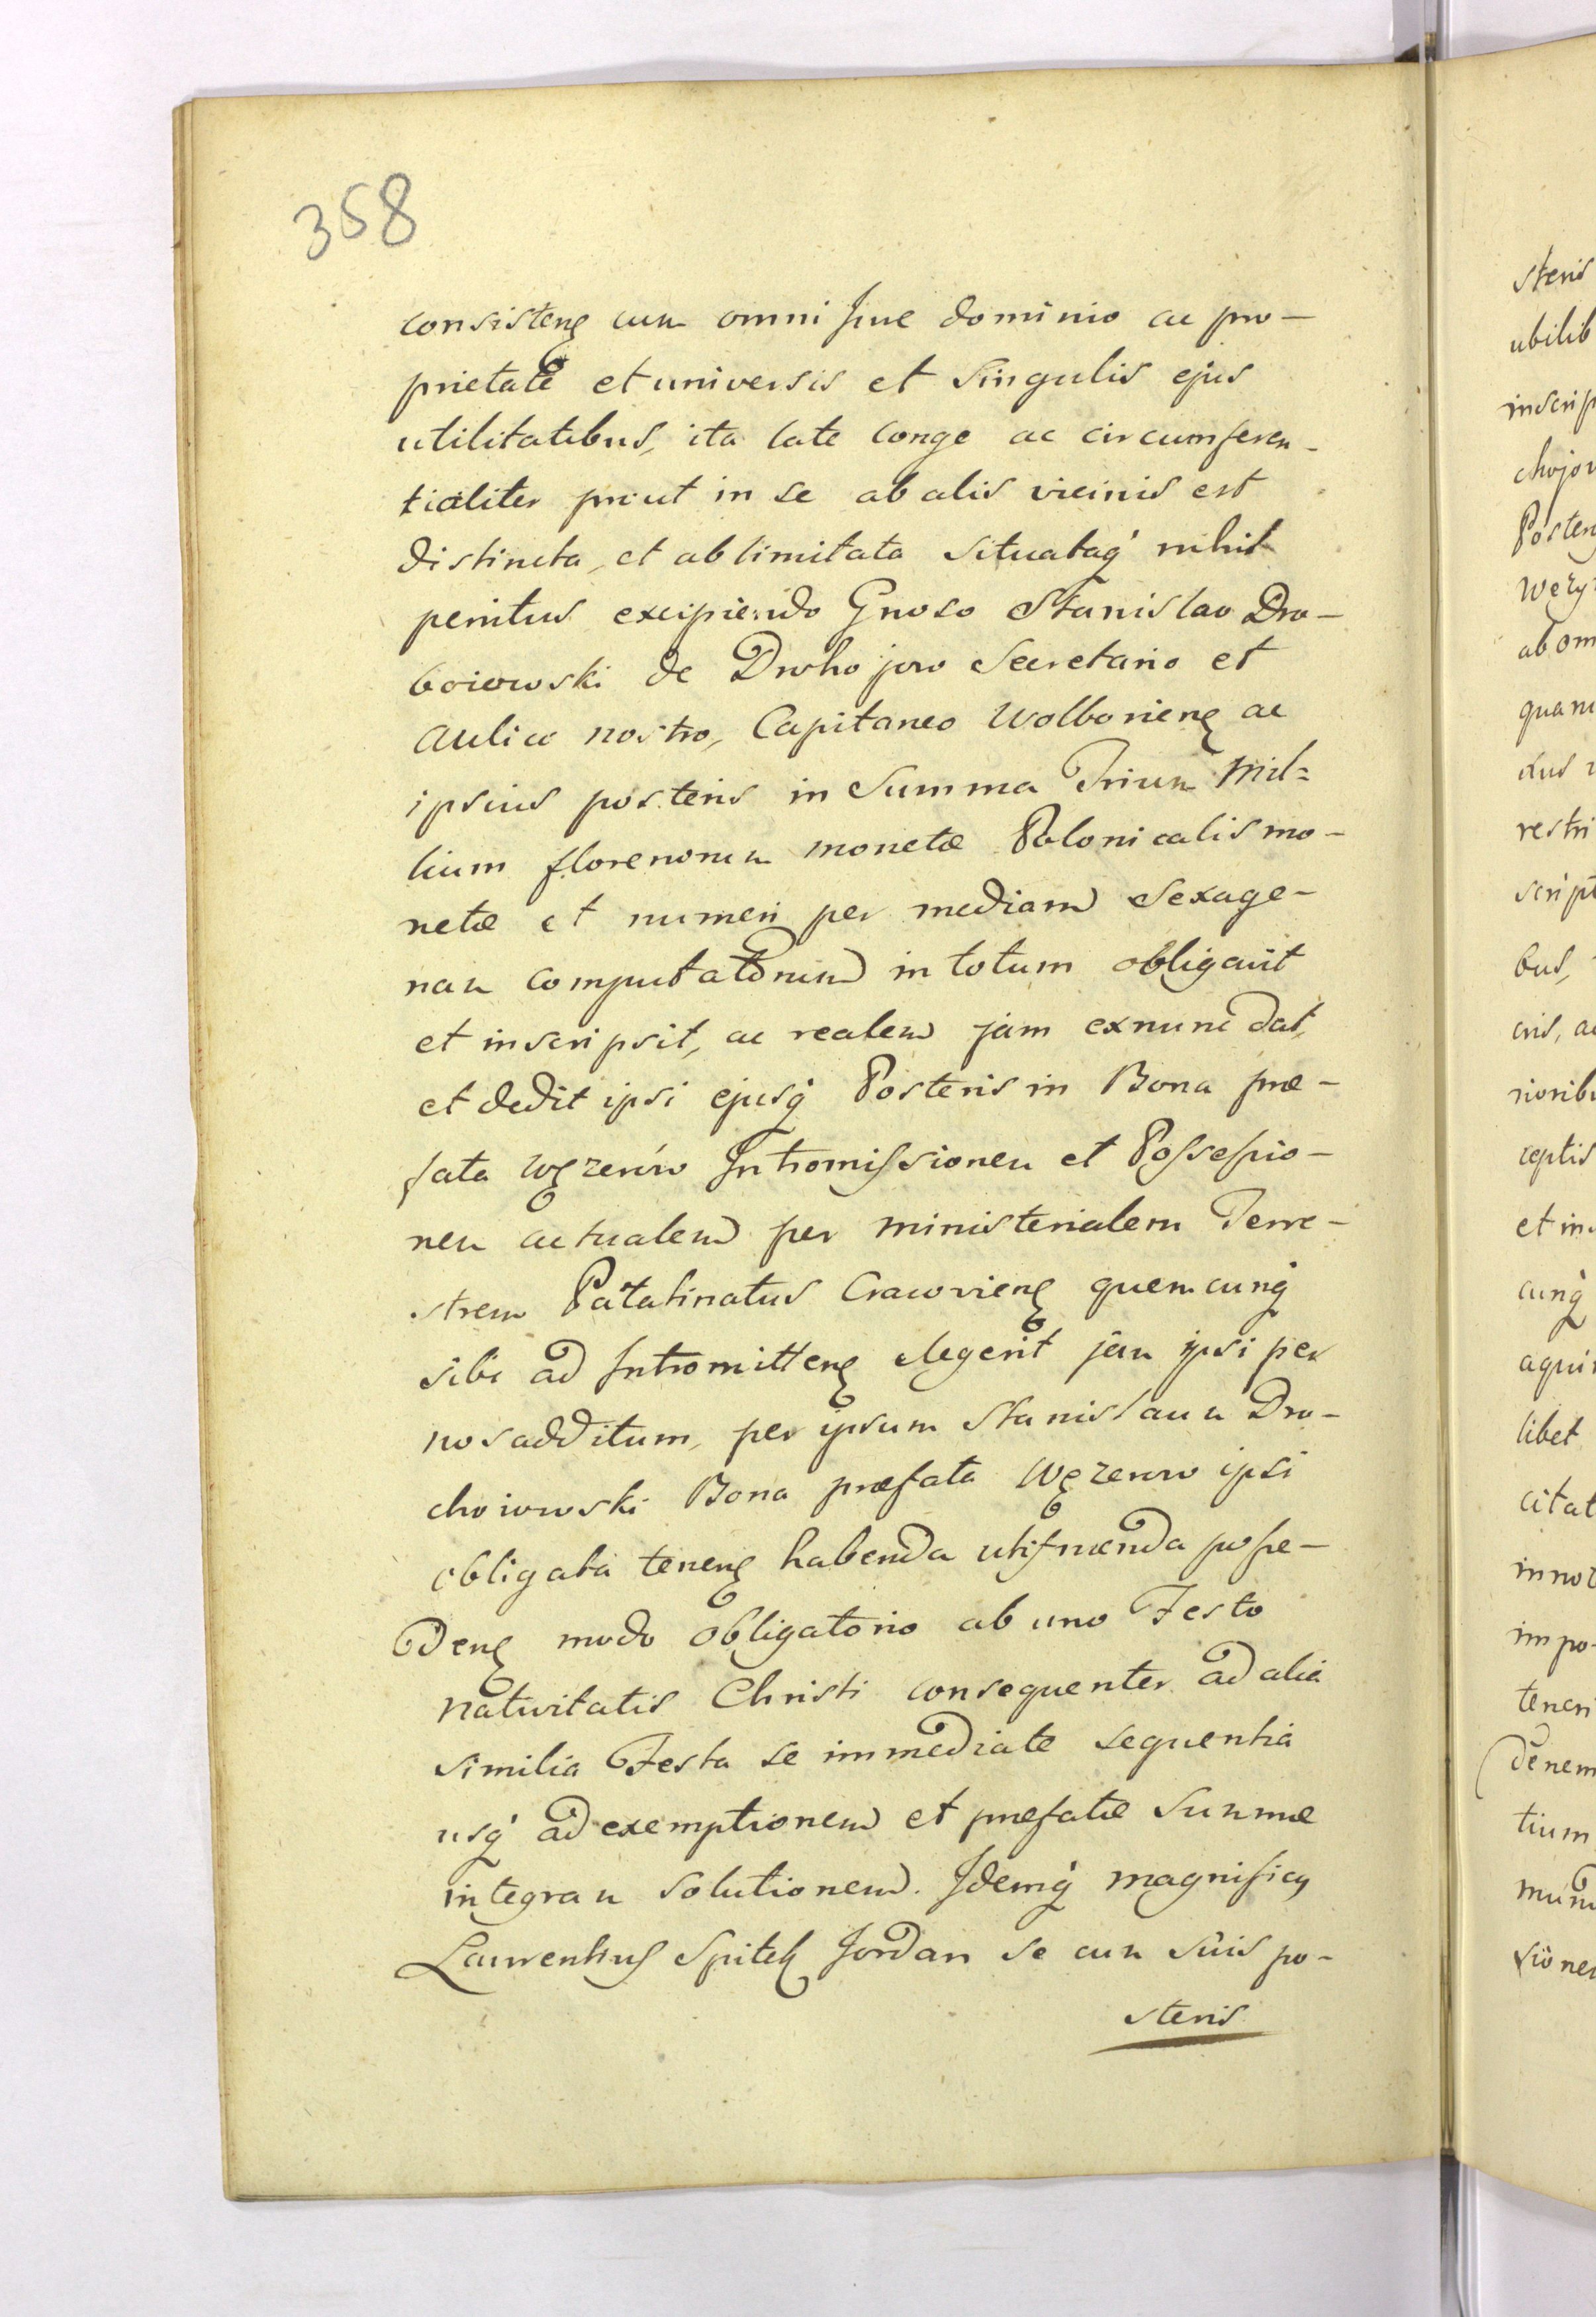 358
consisteng cum omni Jure dominio ac pro-
prietate et universis et singulis ejus
utilitatibus, ita late longe ac circumferen-
tialiter prout in se ab aliis vicinis est
distincta, et ablimitata situataq' nihil
penitus excipiendo Gnoso Stanislao Dro-
boiowski de Drohojow Secretario et
Aulico nostro, Capitaneo Wolborieng ac
ipsius posteris in Summa Trium Mil=
lium florenorum monetæ Polonicalis mo-
netæ et numeri per mediam Sexage-
nam computatorum in totum obligavit
et inscripsit, ac realem jam exnunc dat,
et dedit ipsi ejusq' Posteris in Bona præ-
fata Węzerów Intromissionem et Possessio-
nem actualem per ministerialem Terre-
strem Palatinatus Cracovieng quemcunq'
sibi ad Intromitteng elegerit jam ipsi per
nos additum, per ipsum Stanislaum Dro-
choiowski Bona præfata Węzerow ipsi
obligata teneng habenda utifruenda posse-
deng modo obligatorio ab uno Festo
nativitatis Christi consequenter ad alia
similia Festa se immediate sequentia
usq' ad exemptionem et præfatæ Summæ
integram solutionem. Idemq' magnificy
Laurentius Spitek Jordan se cum suis po-
steris
steris
ubilib
inscrip
chojow
Poster
Węzy
ab om
quam
restri
script
bus,
ceptis
et in
cunq'
libet
citat
impo-
teneri
denem
tium